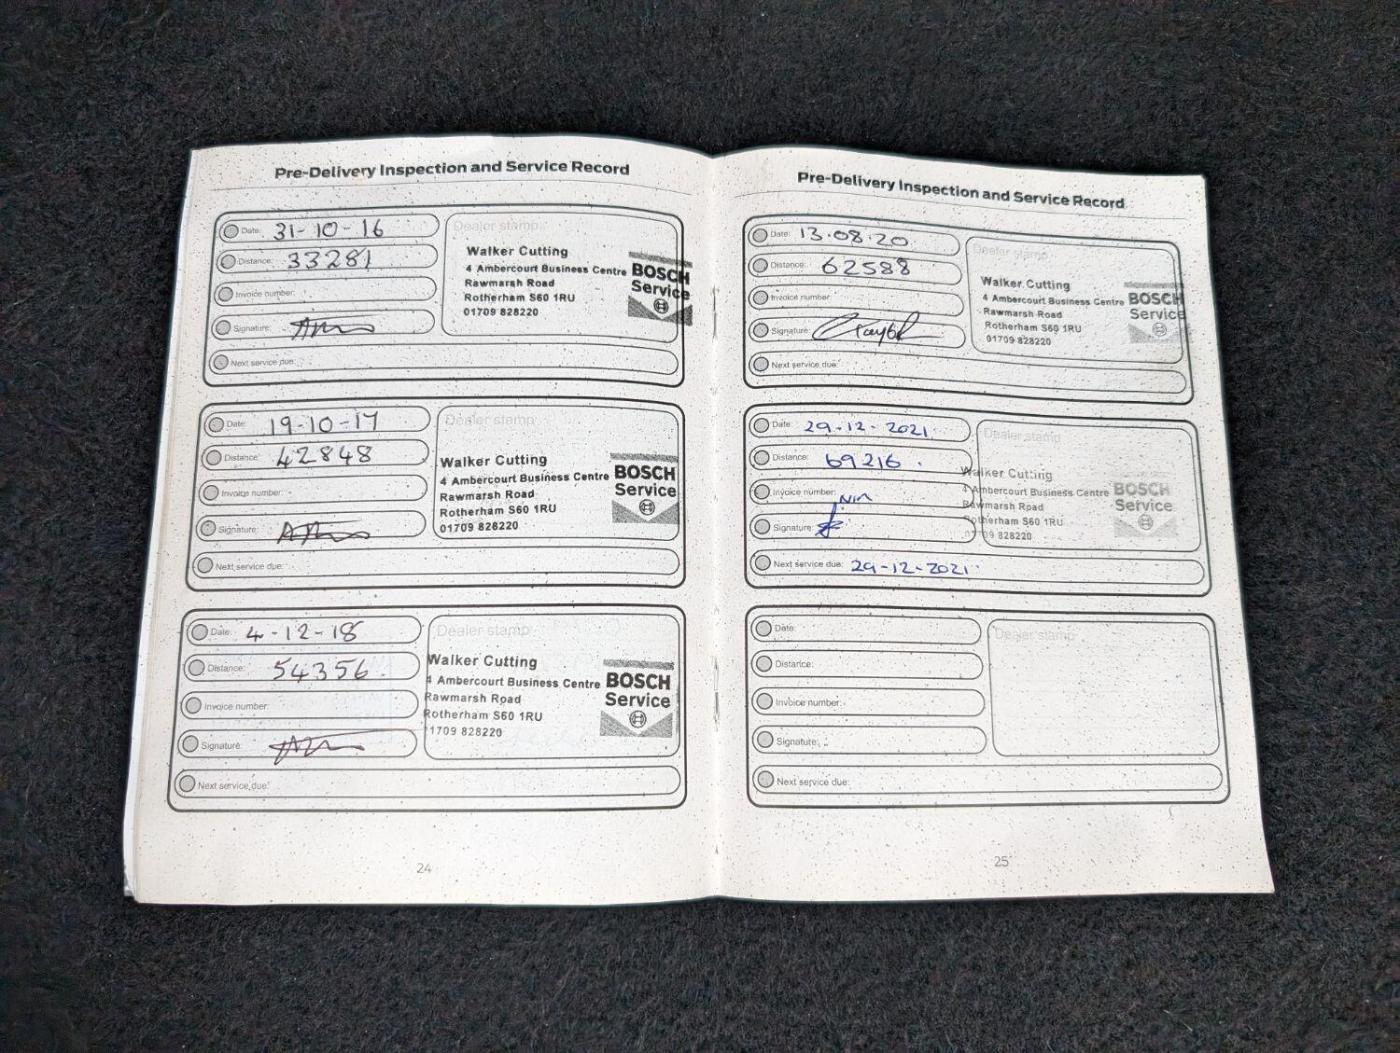 Pre-Delivery Inspection and Service Record
Date: 31-10-16
Distance: 33281
Invoice number:
Signature:
Next service due:
Dealer stamp
Walker Cutting
4 Ambercourt Business Centre
Rawmarsh Road
Rotherham S60 1RU
01709 828220
BOSCH
Service
Date: 19-10-17
Distance: 42848
Invoice number:
Signature:
Next service due:
Dealer stamp
Walker Cutting
4 Ambercourt Business Centre
Rawmarsh Road
Rotherham S60 1RU
01709 828220
BOSCH
Service
Date: 4-12-18
Distance: 54356
Invoice number:
Signature:
Next service due:
Dealer stamp
Walker Cutting
4 Ambercourt Business Centre
Rawmarsh Road
Rotherham S60 1RU
01709 828220
BOSCH
Service
24
Pre-Delivery Inspection and Service Record
Date: 13.08.20
Distance: 62588
Invoice number:
Signature:
Next service due:
Dealer stamp
Walker Cutting
4 Ambercourt Business Centre
Rawmarsh Road
Rotherham S60 1RU
01709 828220
BOSCH
Service
Date: 29-12-2021
Distance: 69216
Invoice number:
Signature:
Next service due: 29-12-2021
Dealer stamp
Walker Cutting
4 Ambercourt Business Centre
Rawmarsh Road
Rotherham S60 1RU
01709 828220
BOSCH
Service
Date:
Distance:
Invoice number:
Signature:
Next service due:
Dealer stamp
25